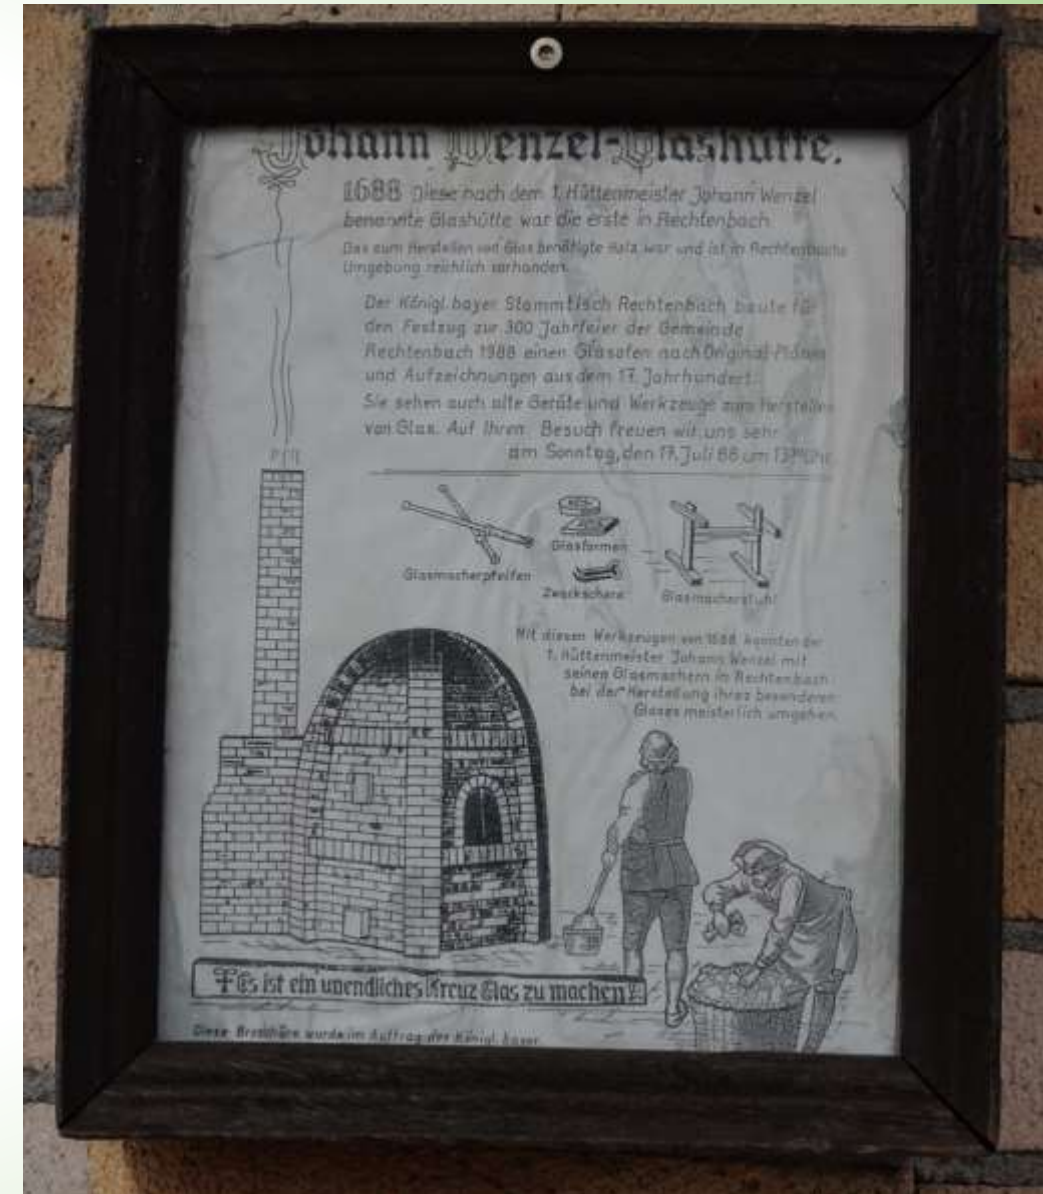 Johann Wenzel-Glashütte.
1688 Diese nach dem 1. Hüttenmeister Johann Wenzel
benannte Glashütte war die erste in Rechtenbach
Das zum Herstellen von Glas benötigte Holz war und ist in Rechtenbachs
Umgebung reichlich vorhanden.
Der Königl. bayer Stammtisch Rechtenbach baute für
den Festzug zur 300 Jahrfeier der Gemeinde
Rechtenbach 1988 einen Glasofen nach Original-Plänen
und Aufzeichnungen aus dem 17. Jahrhundert.
Sie sehen auch alte Geräte und Werkzeuge zum Herstellen
von Glas. Auf Ihren Besuch freuen wir uns sehr
am Sonntag, den 17. Juli 88 um 13⁰⁰ Uhr
Glasmacherpfeifen
Glasformen
Zwackschere
Glasmacherstuhl
Mit diesen Werkzeugen von 1688 konnten der
1. Hüttenmeister Johann Wenzel mit
seinen Glasmachern in Rechtenbach
bei der Herstellung ihres besonderen
Glases meisterlich umgehen.
Es ist ein unendliches Kreuz Glas zu machen
Diese Broschüre wurde im Auftrag des Königl. bayer.